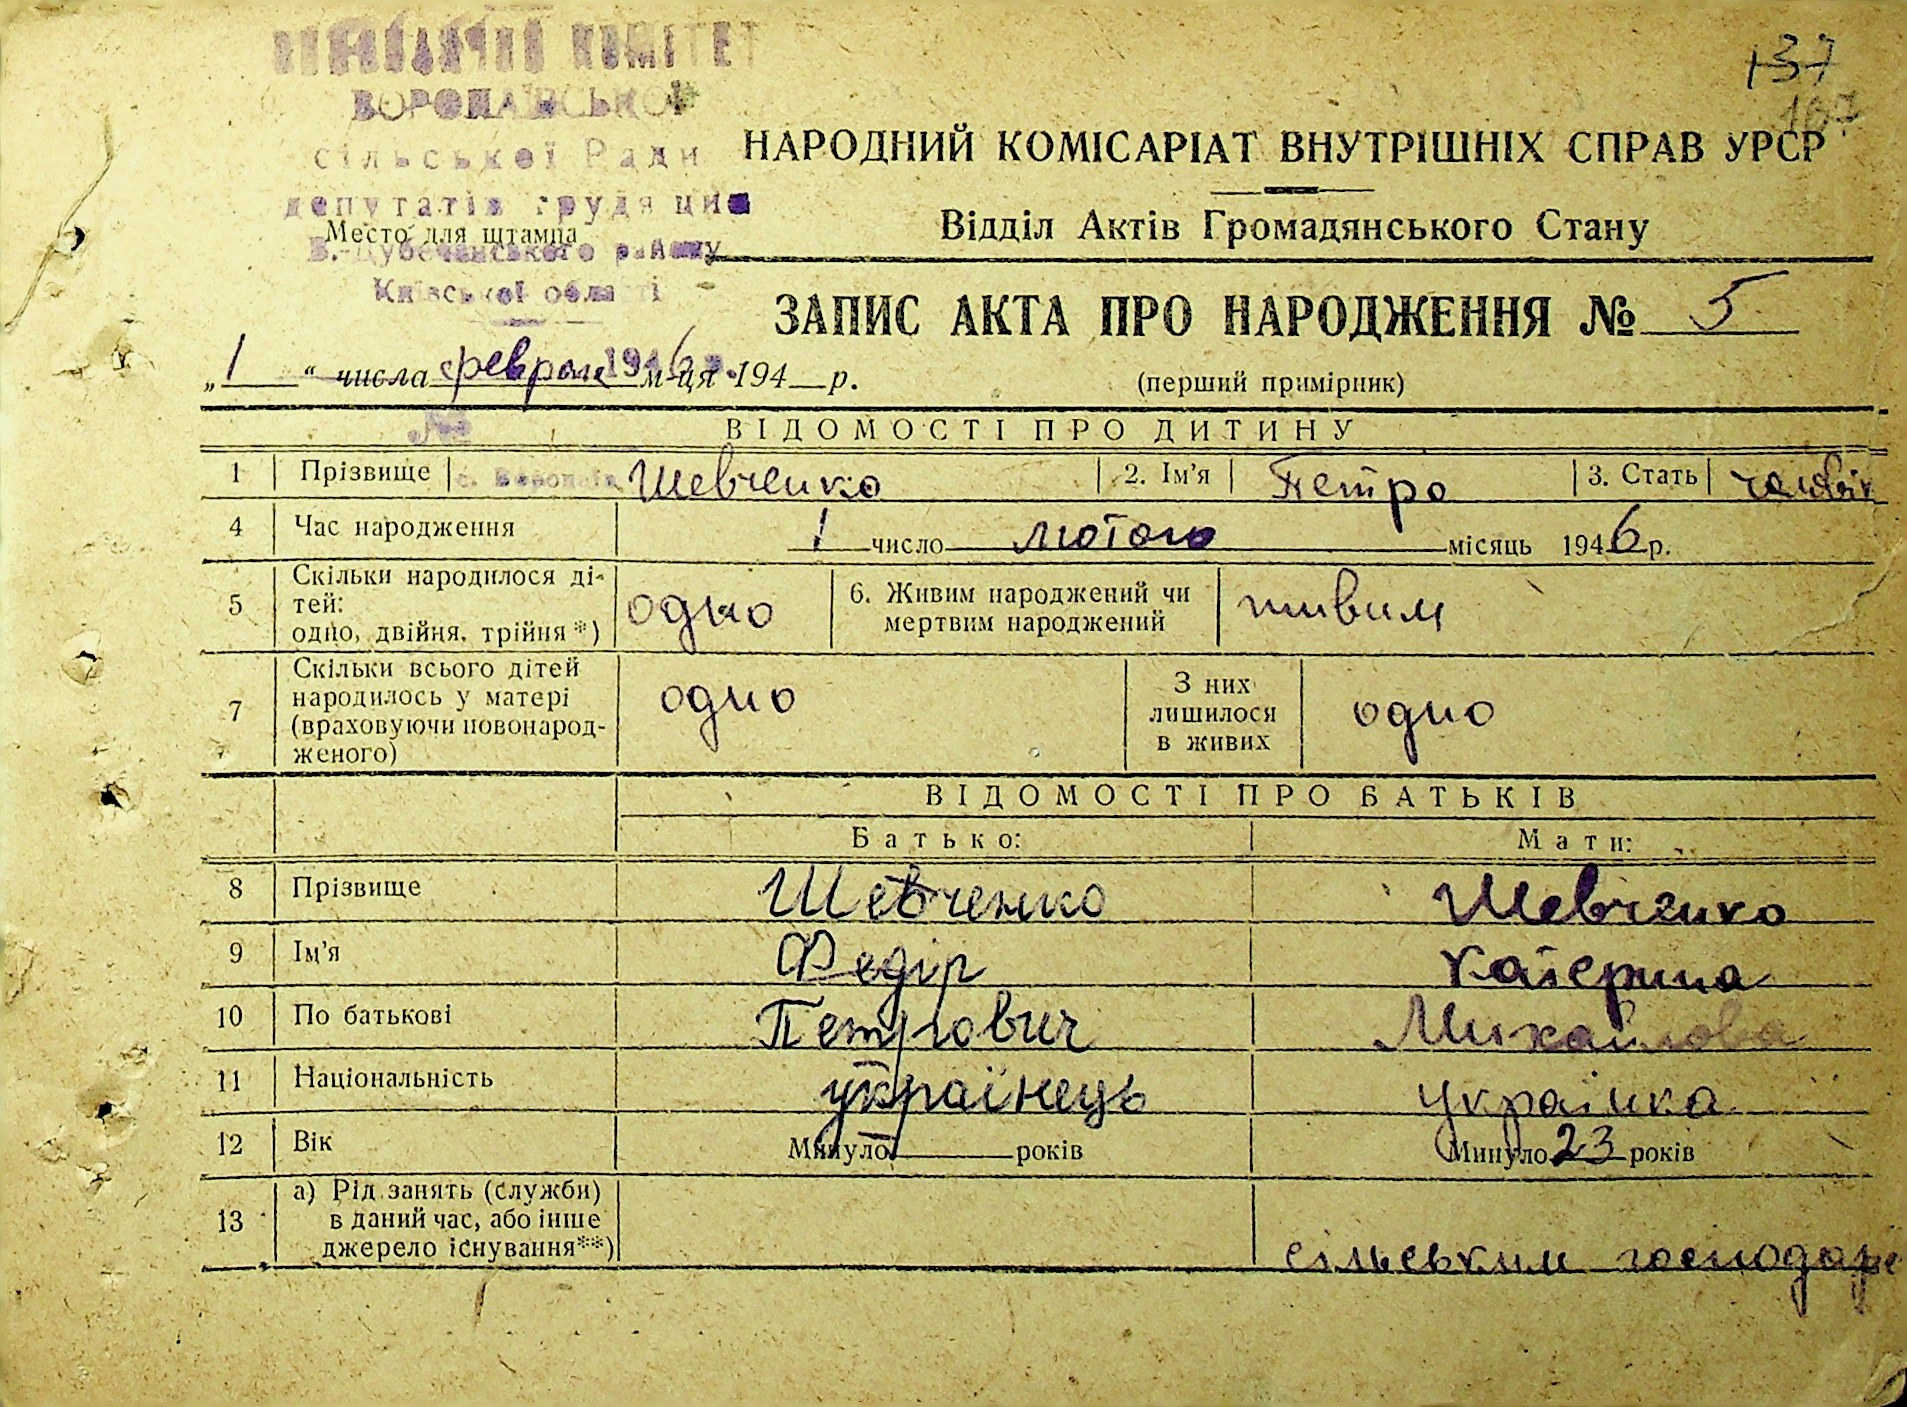 ВИКОНАВЧИЙ КОМІТЕТ
ВОРОПАЇВСЬКОЇ
сільської Ради
депутатів трудящих
В.-Дубечанського району
Київської області
Место для штампа
137
167
НАРОДНИЙ КОМІСАРІАТ ВНУТРІШНІХ СПРАВ УРСР
Відділ Актів Громадянського Стану
ЗАПИС АКТА ПРО НАРОДЖЕННЯ № 5
„1“ числа феврале 1946 м-ця 194 р.
(перший примірник)
№
ВІДОМОСТІ ПРО ДИТИНУ
1 Прізвище с. Воропаїв Шевченко 2. Ім'я Петро 3. Стать чоловік
4 Час народження 1 число лютого місяць 1946 р.
5 Скільки народилося ді-
тей:
одно, двійня, трійня*) одно 6. Живим народжений чи
мертвим народжений живим
7 Скільки всього дітей
народилось у матері
(враховуючи новонарод-
женого) одно З них
лишилося
в живих одно
ВІДОМОСТІ ПРО БАТЬКІВ
Батько: Мати:
8 Прізвище Шевченко Шевченко
9 Ім'я Федір Катерина
10 По батькові Петрович Михайлова
11 Національність українець українка
12 Вік Минуло років Минуло 23 років
13 а) Рід занять (служби)
в даний час, або інше
джерело існування**) сільським господар